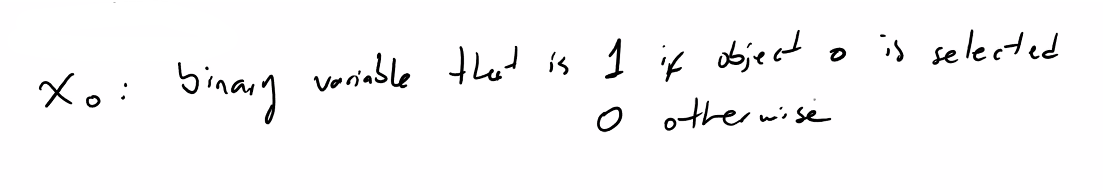 x₀ : binary variable that is 1 if object o is selected
0 otherwise